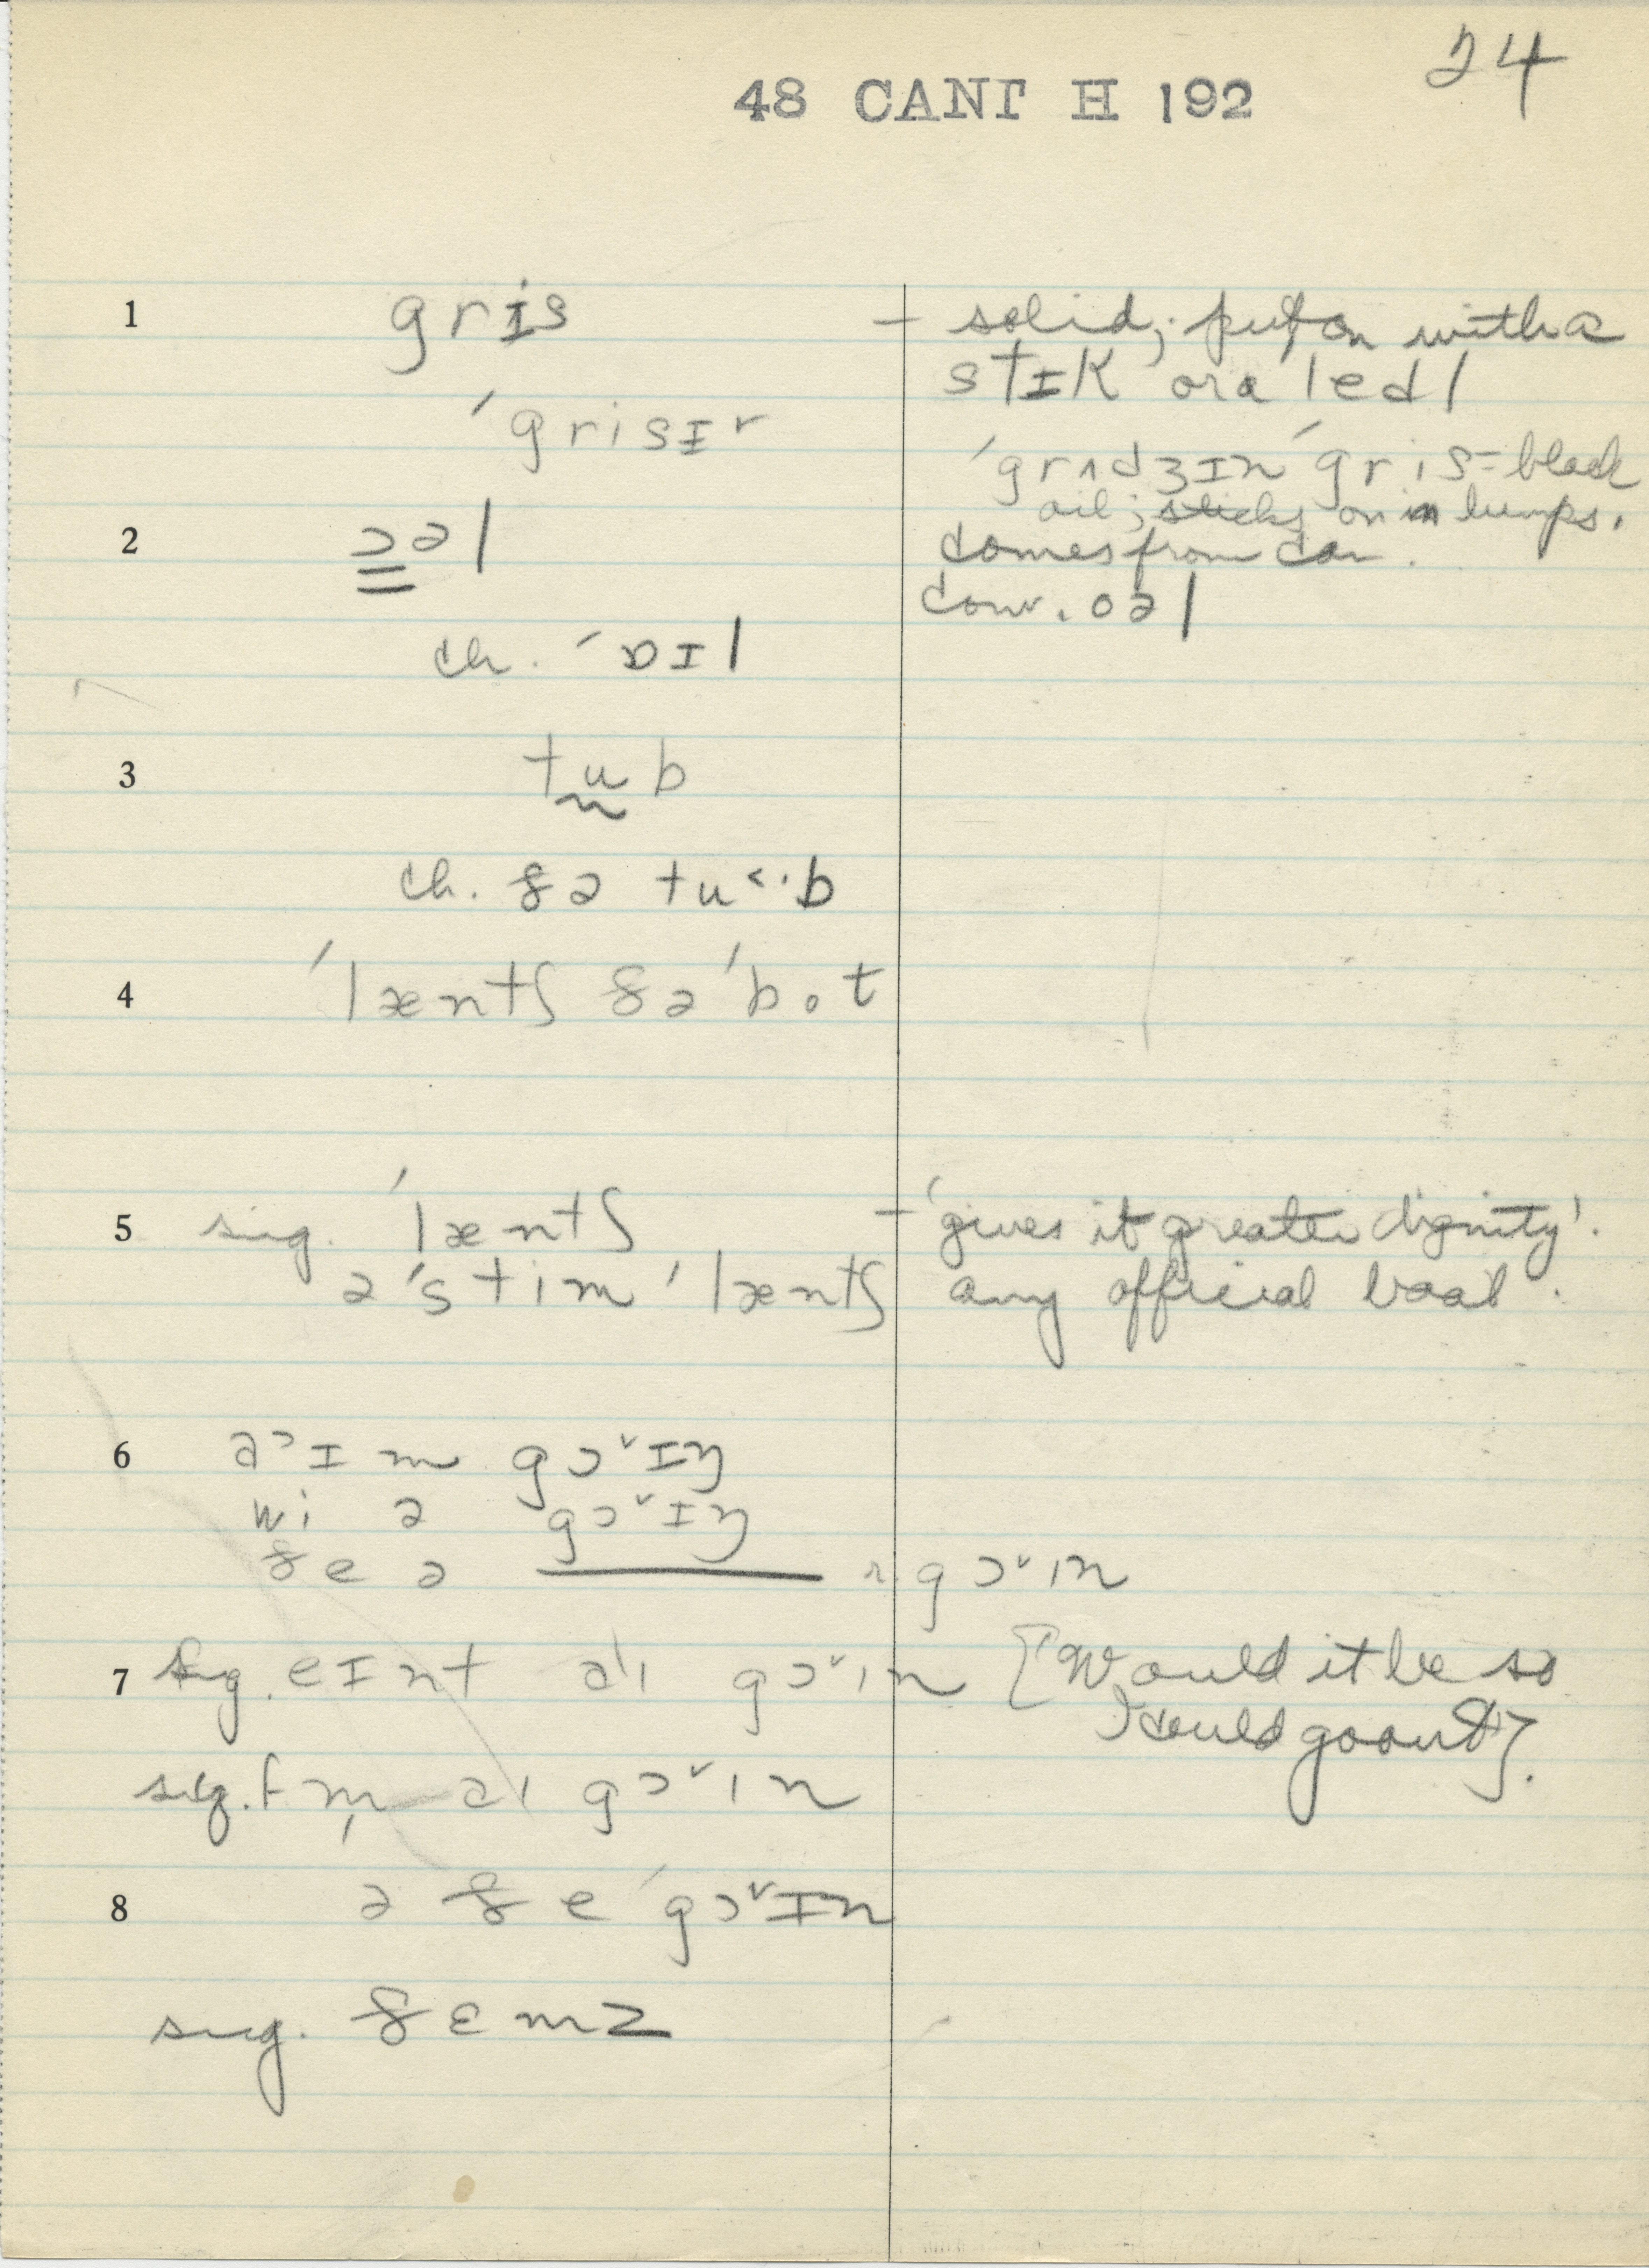 24
48 CANT H 192
1 grɪs – solid; put on with a
stɪk or a led|
ˈgrisɪr
ˈgrʌdʒɪn ˈgris = black
oil; sticks on in lumps.
2 ɔəl comes from car.
conv. oəl
ch. ˈɒɪl
3 tub
ch. ðə tu<·b
4 ˈlæntʃ ðə ˈbot
5 sug. ˈlæntʃ – 'gives it greater dignity'.
əˈstim ˈlæntʃ any official boat.
6 əɔɪm gɔ˅ɪŋ
wi ə gɔ˅ɪŋ
ðe ə gɔ˅in
7 sug. eɪnt ai gɔ˅in [Would it be so
I could go out].
sug. m̩ ai gɔ˅in
8 ə ðe ˈgɔ˅ɪn
sug. ðɛmz